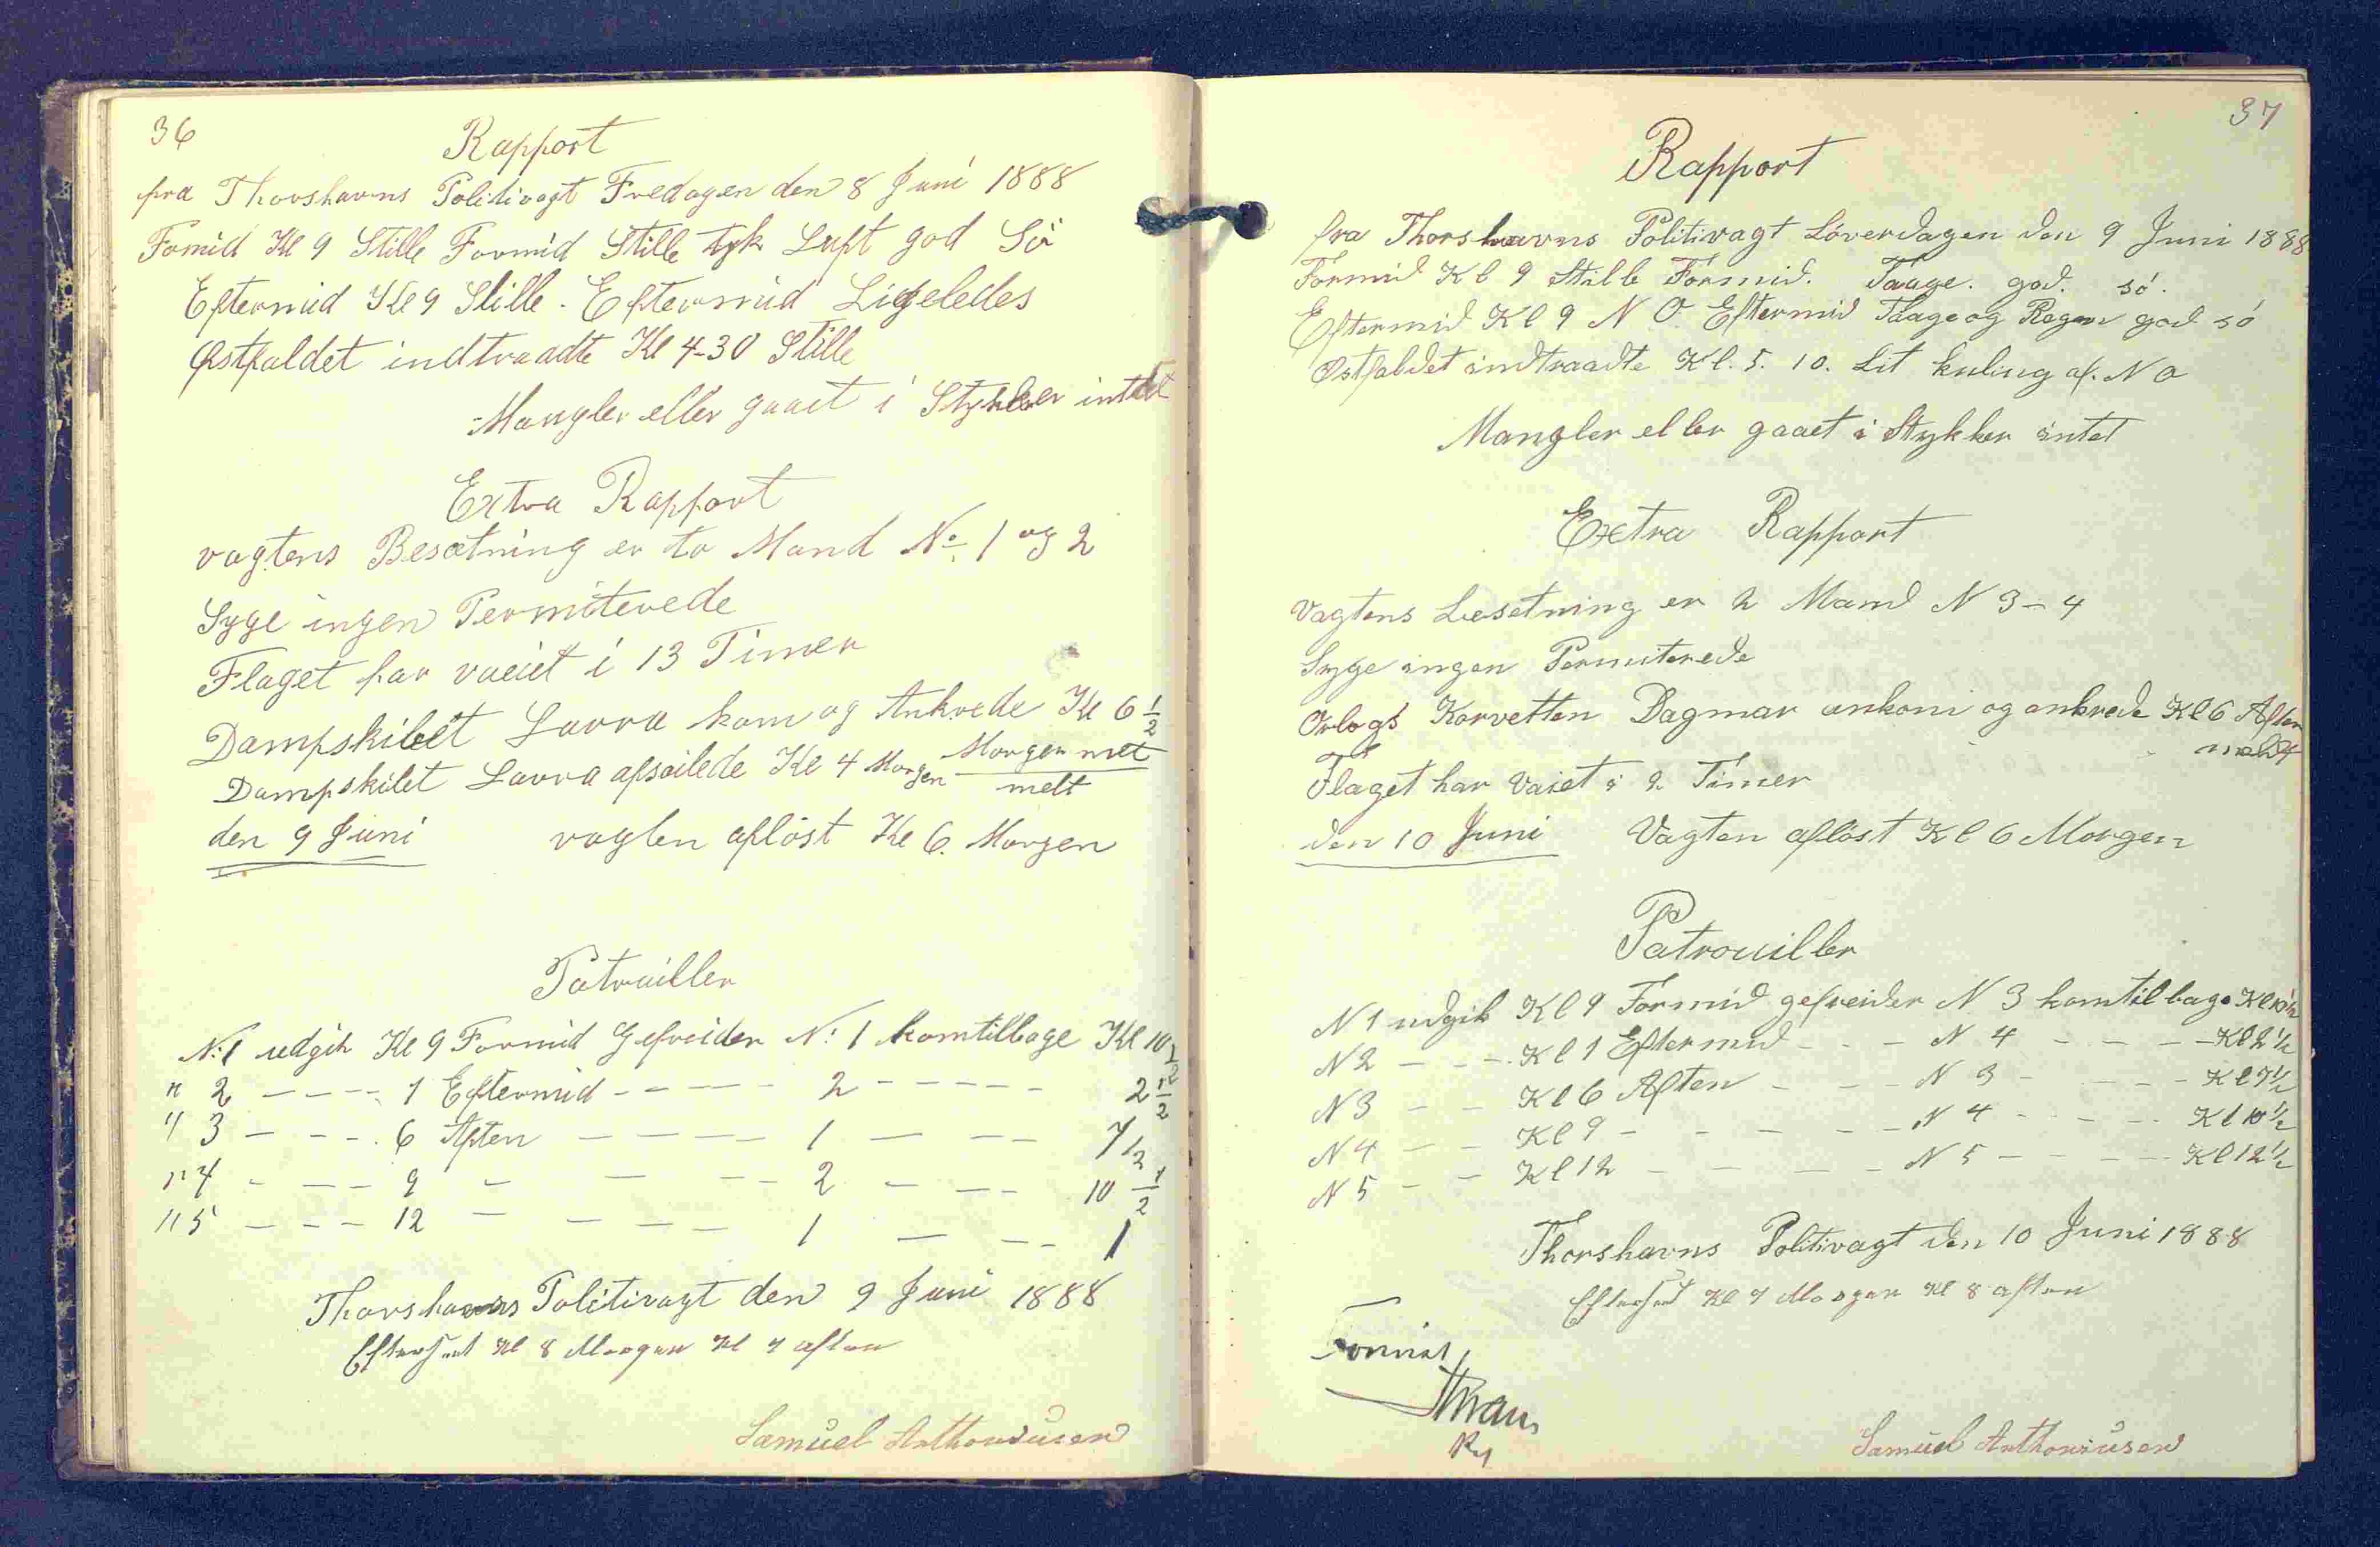 36
Rapport
fra Thorshavns Politivagt Fredagen den 8 Juni 1888
Fomid Kl 9 Stille Formid Stille tyk Luft god Sö
Eftermid Kl 9 Stille. Eftermid Ligeledes
Østfaldet indtraadte Kl 4-30 Stille
Mangler eller gaaet i Stykker intet
Extra Rapport
vagtens Besætning er to Mand No 1 og 2
Syge ingen Permiterede
Flaget har vaeiet i 13 Timer
Dampskibet Laura kom og Ankrede Kl 6 1/2
Morgen melt
Dampskibet Laura afseilede Kl 4 Morgen melt
den 9 Juni vagten aflöst Kl 6. Morgen
Patruiller
N: 1 udgik Kl 9 Formid Gefreider N: 1 komtilbage Kl 10 1/2
" 2 - - - - 1 Eftermid - - - - 2 - - - - - 2 1/2
" 3 - - - . 6 Aften - - - - 1 - - - 7 1/2
" 4 - - - 9 - - - - 2 - - - 10 1/2
" 5 - - - 12 - - - - 1 - - - 1
Thorshavns Politivagt den 9 Juni 1888
Efterseet Kl 8 Morgen Kl 7 aften
Samuel Anthoniusen
37
Rapport
fra Thorshavns Politivagt Löverdagen den 9 Juni 1888
Formid Kl 9 Stille Formid. Taage. god. sö.
Eftermid Kl 9 N O. Eftermid Taage og Regn god sö
Østfaldet indtraadte Kl. 5. 10. Lit kuling af. N O
Mangler eller gaaet i Stykker intet
Extra Rapport
Vagtens Besetning er 2 Mand N 3 - 4
Syge ingen Permiterede
Orlogs Korvetten Dagmar ankom og ankrede Kl 6 Aften
meldt
Flaget har Vaiet i 2 Timer
den 10 Juni Vagten aflöst Kl 6 Morgen
Patrouiller
N 1 udgik Kl 9 Formid gefreider N 3 komtilbage Kl 10 1/2
N 2 - - - Kl 1 Eftermid - - - N 4 - - - - Kl 2 1/2
N 3 - - Kl 6 Aften - - - N 3 - - - - Kl 7 1/2
N 4 - - Kl 9 - - - - - N 4 - - - - Kl 10 1/2
N 5 - - Kl 12 - - - - N 5 - - - - Kl 12 1/2
Thorshavns Politivagt den 10 Juni 1888
Efterseet Kl 7 Morgen Kl 8 aften
Samuel Anthoniusen